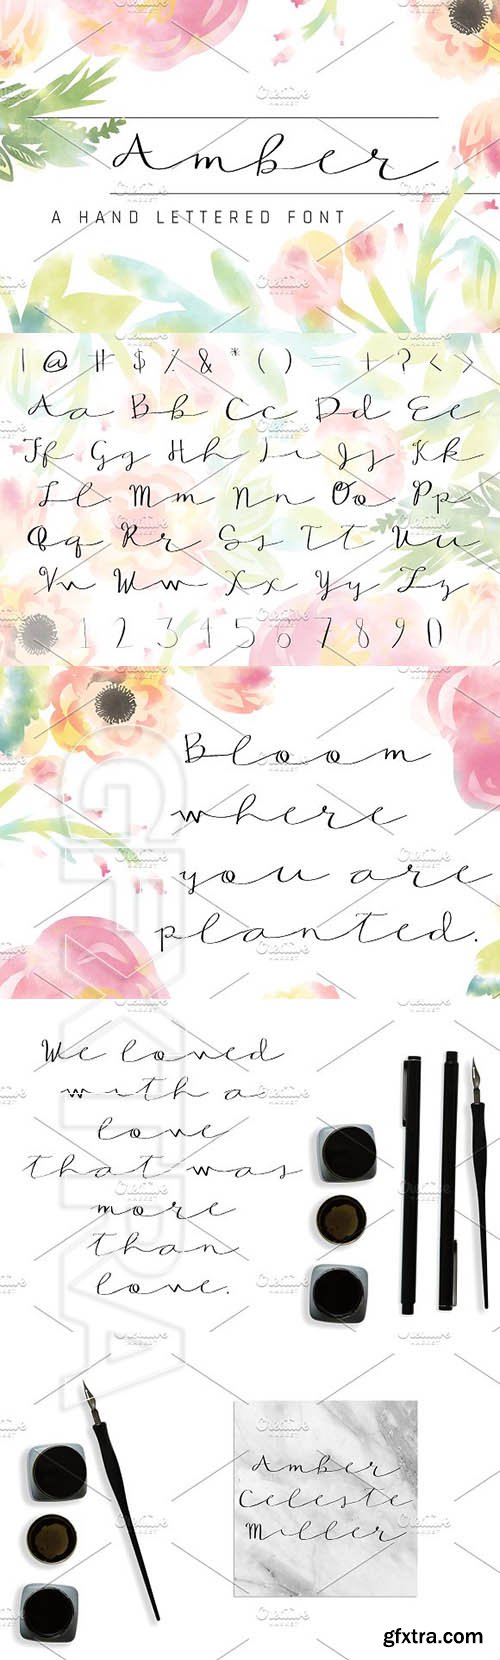 Amber
A HAND LETTERED FONT
| @ # $ % & * ( ) = + ? < >
Aa Bb Cc Dd Ee
Ff Gg Hh Ii Jj Kk
Ll Mm Nn Oo Pp
Qq Rr Ss Tt Uu
Vv Ww Xx Yy Zz
1 2 3 4 5 6 7 8 9 0
Bloom
where
you are
planted.
We loved
with a
love
that was
more
than
love.
Amber
Celeste
Miller
GFXTRA
Creative Market
gfxtra.com